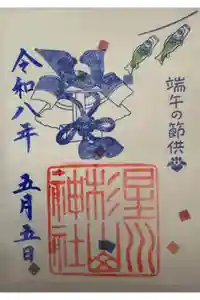 端午の節供
令和八年
五月五日
星川
杉山
神社